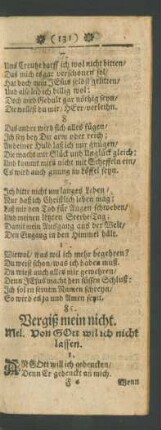 (131)
7.
Ums Creutze darff ich wol nicht bitten/
Daß mich es gar verschonen sol/
Hat doch mein JEsus selbst gelitten/
Und also leid ich billig wol:
Doch wird Gedult gar nöthig seyn/
Die wollst du mir/ HErr/ verleihen.
8.
Das ander wird sich alles fügen/
Ich sey bey dir arm oder reich;
An deiner Huld laß ich mir gnügen/
Die macht mir Glück und Unglück gleich;
Und kommt nicht mit Scheffeln ein/
Es wird auch gnung im Löffel seyn.
9.
Ich bitte nicht um langes Leben/
Nur daß ich Christlich leben mag:
Laß mir den Tod für Augen schweben/
Und meinen letzten Sterbe-Tag:
Damit mein Ausgang aus der Welt/
Den Eingang in den Himmel hält.
Wiewol/ was wil ich mehr begehren?
Du weist schon/ was ich haben muß.
Du wirst auch alles mir gewehren/
Denn JEsus macht den süssen Schluß:
Ich sol in seinem Namen schreyen/
So wird es Ja und Amen seyn.
Vergiß mein nicht.
Mel. Von GOtt wil ich nicht
lassen.
1.
AN GOtt will ich gedencken/
Denn Er gedenckt an mich.
Wenn